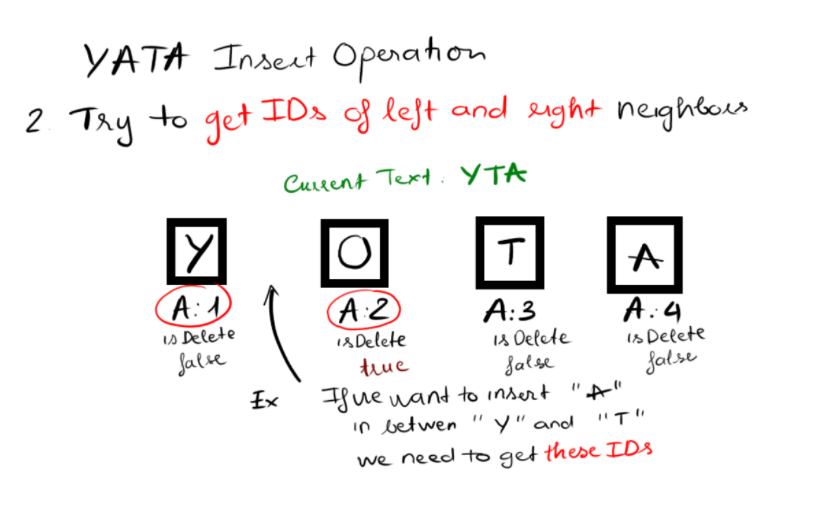 YATA Insert Operation
2. Try to get IDs of left and right neighbors
Current Text: YTA
Y O T A
A:1 A:2 A:3 A:4
isDelete isDelete isDelete isDelete
false true false false
Ex If we want to insert "A"
in betwen "Y" and "T"
we need to get these IDs